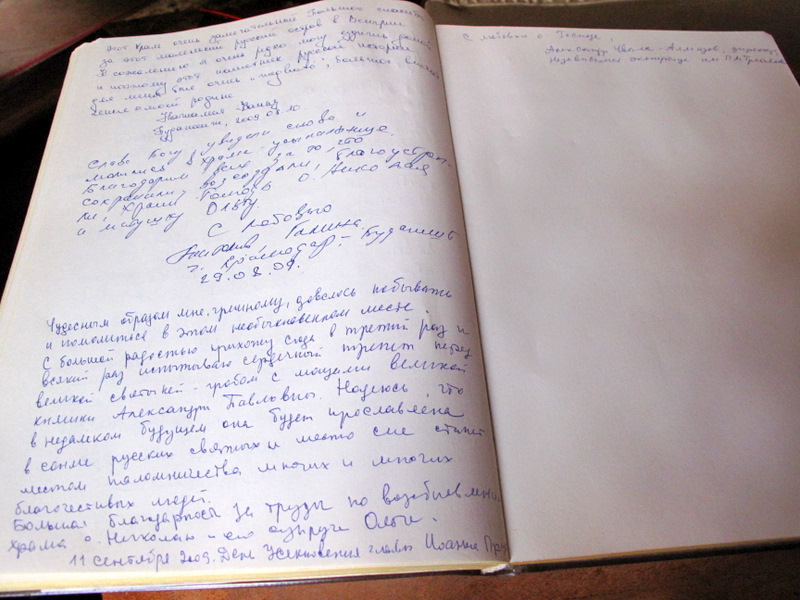 Этот храм очень замечательный Большое спасибо
за этот маленький русский остров в Венгрии
К сожалению я очень редко могу
и поэтому этот памятник русской истории
для меня был очень
о моей родине
Будапешт, 2009.08.10.
Слава Богу увидели снова и
молились в храме-усыпальнице.
Благодарим всех за то, что
сохранили, воссоздали, благоустрои-
ли, храни Господь о. Николая
и матушку Ольгу.
С любовью
Галина
г. Краснодар - Будапешт
29.08.09.
Чудесным образом мне, грешному, довелось побывать
и помолиться в этом необыкновенном месте.
С большой радостью прихожу сюда в третий раз и
всякий раз испытываю сердечный трепет перед
великой святыней - гробом с мощами великой
княжны Александры Павловны. Надеюсь, что
в недалеком будущем она будет прославлена
в сонме русских святых и место сие станет
местом паломничества многих и многих
благочестивых людей.
Большая благодарность за труды по возобновлению
храма о. Николаю и его супруге Ольге.
11 сентября 2009. День Усекновения главы Иоанна
С любовью о Господе,
Александр